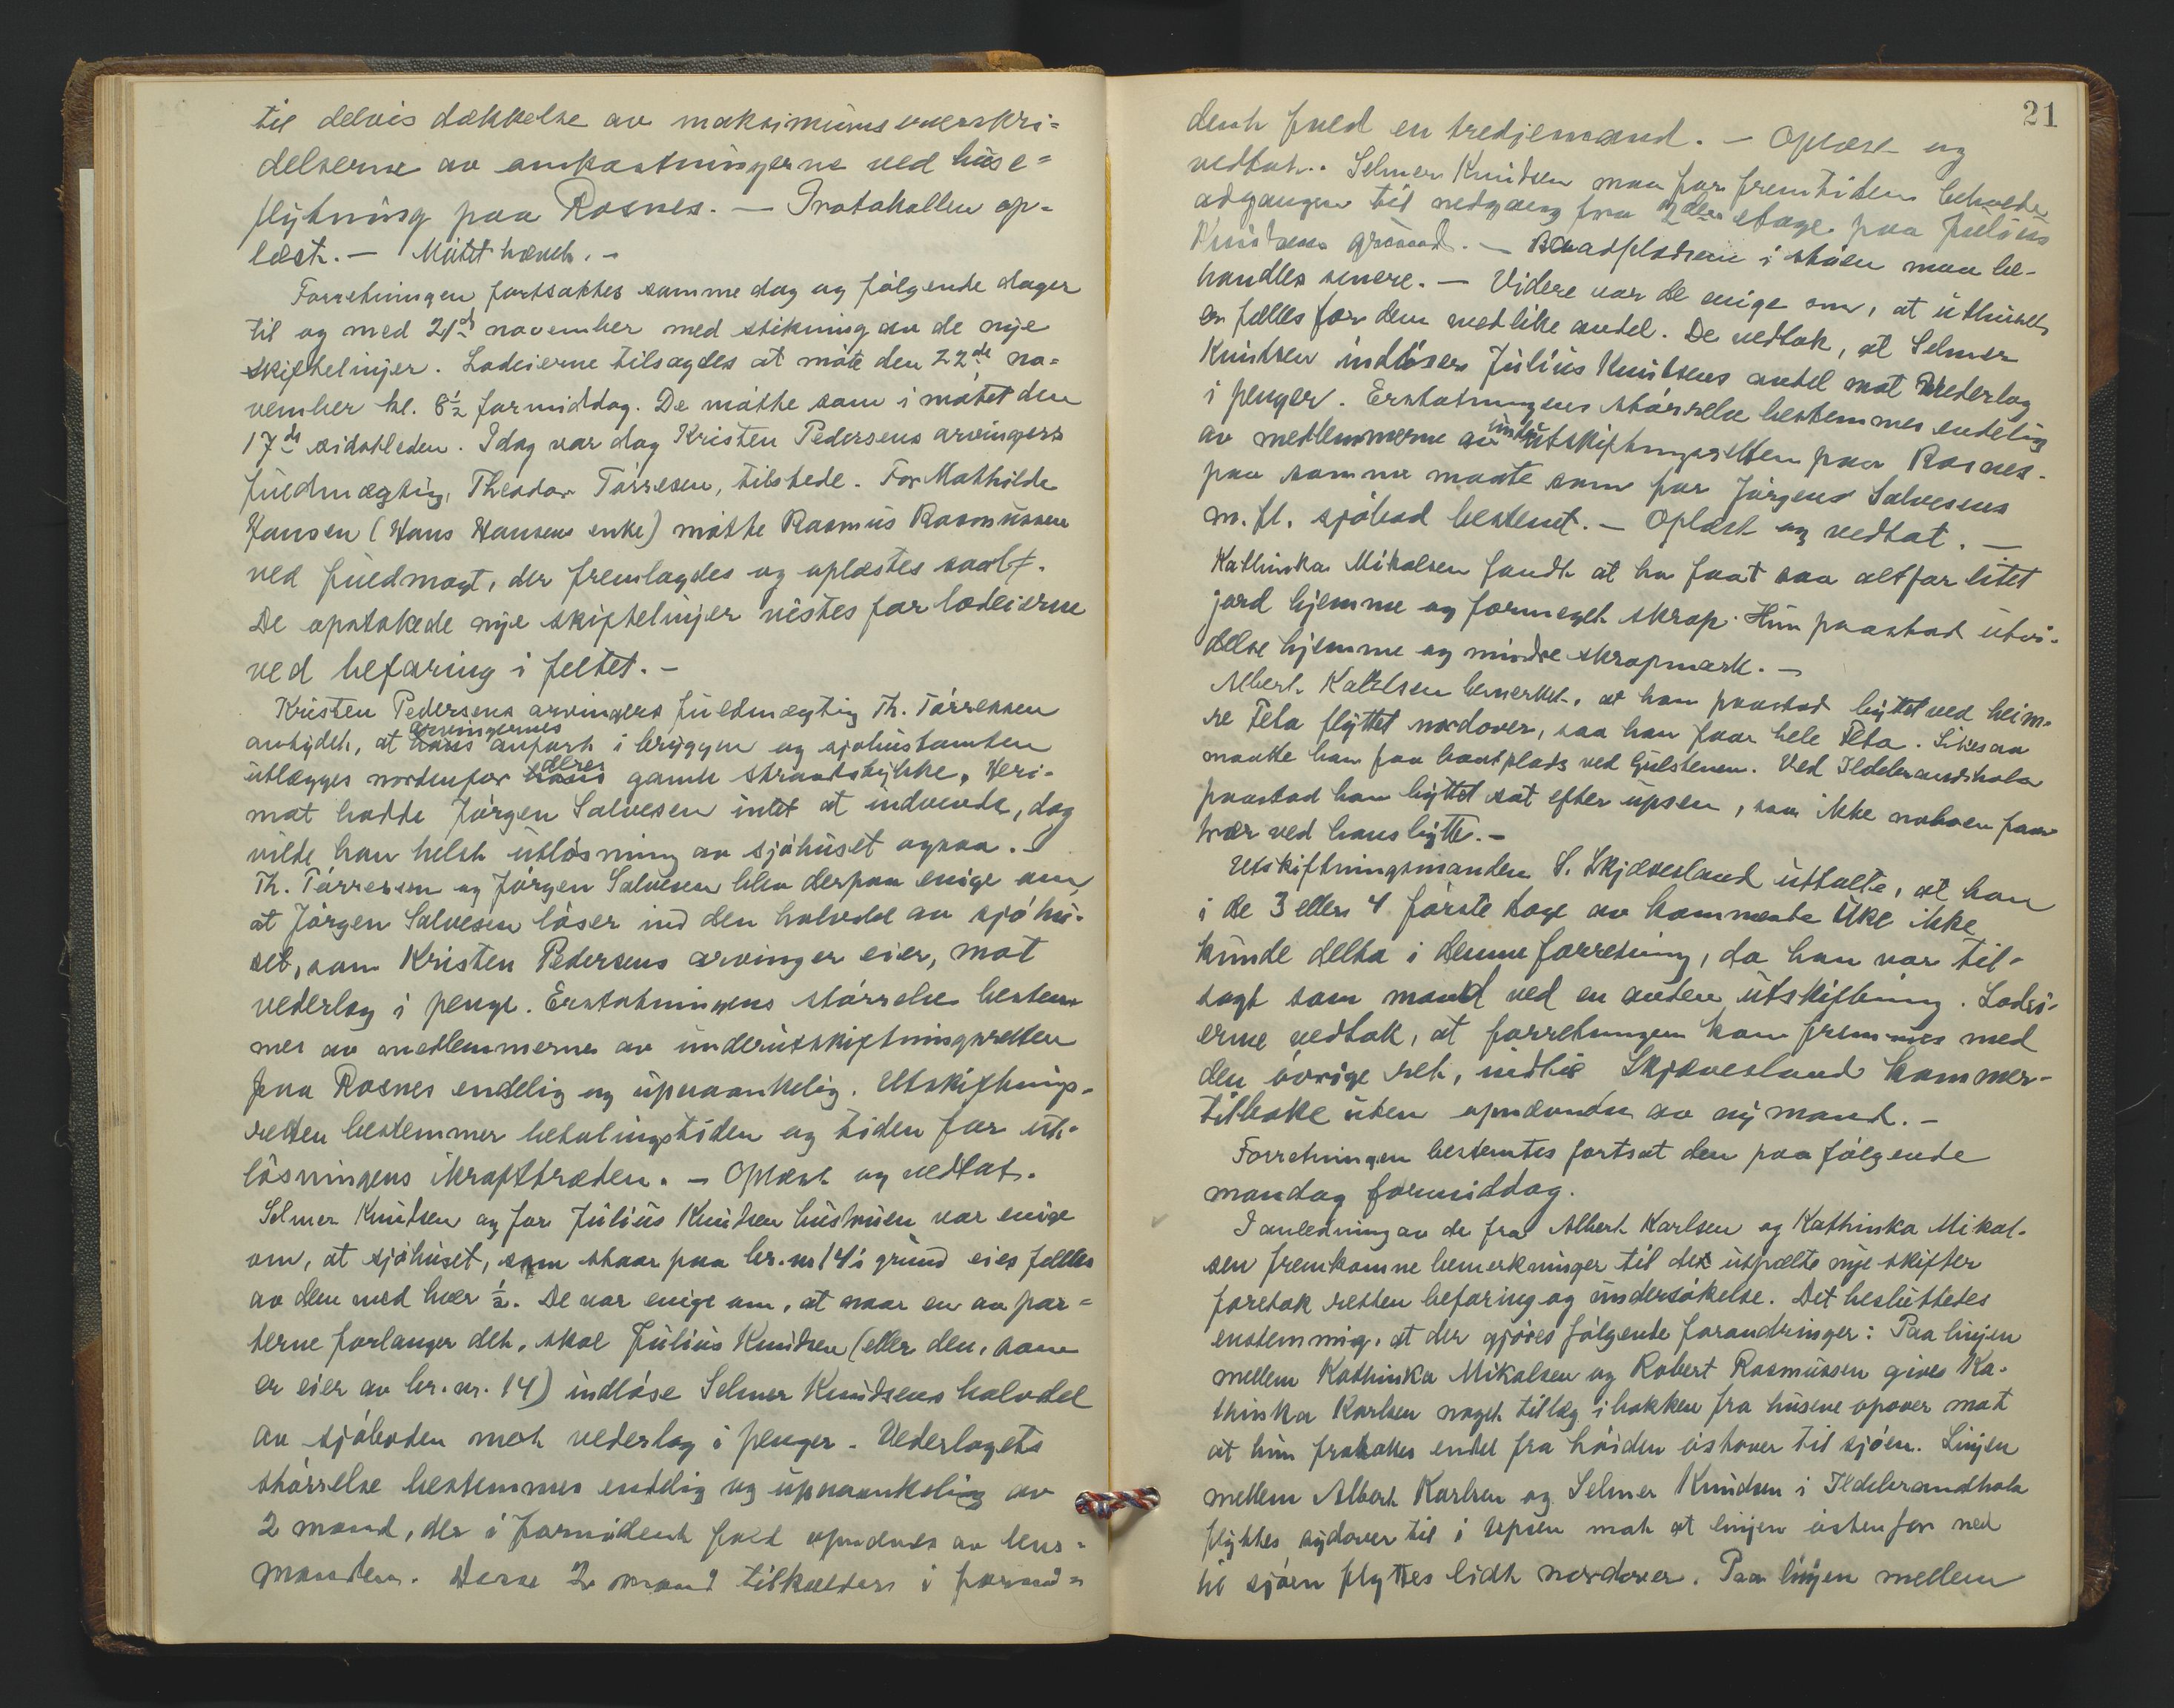 til delvis dækkelse av maksimumsoverskri=
delserne av omkostningerne ved huse=
flytning paa Rosnes. — Protokollen op=
læst. — Mötet hævet. –
Forretningen fortsattes samme dag og fölgende dager
til og med 21de november med stikning av de nye
skiftelinjer. Lodeierne tilsagdes at möte den 22de no=
vember kl. 8½ formiddag. De mötte som i mötet den
17de sidstleden. Idag var dog Kristen Pedersens arvingers
fuldmægtig, Theodor Törresen, tilstede. For Mathilde
Hansen (Hans Hansens enke) mötte Rasmus Rasmussen
ved fuldmagt, der fremlagdes og oplæstes saal.
De opstukede nye skiftelinjer vistes for lodeierne
ved befaring i feltet. –
Kristen Pedersens arvingers fuldmægtig Th. Törressen
antydet, at arvingernes anpart i bryggen og sjöhustomten
utlægges nordenfor deres gamle strandstykke. Heri-
mot hadde Jörgen Salvesen intet at indvende, dog
vilde han helst utlösning av sjöhuset ogsaa. –
Th. Törressen og Jörgen Salvesen blev derpaa enige om,
at Jörgen Salvesen löser ind den halvdel av sjöhu-
set, som Kristen Pedersens arvinger eier, mot
vederlag i penge. Erstatningens störrelse bestem-
mes av medlemmerne av underutskiftningsretten
paa Rosnes endelig og upaaankelig. Utskiftnings-
retten bestemmer betalingstiden og tiden for ut-
lösningens ikrafttræden. – Oplæst og vedtat.
Selmer Knudsen og for Julius Knudsen hustruen var enige
om, at sjöhuset, som staar paa br. nr 14's grund eies fælles
av dem med hver ½. De var enige om, at naar en av par=
terne forlanger det, skal Julius Knudsen (eller den, som
er eier av br. nr. 14) indlöse Selmer Knudsens halvdel
av sjöboden mot vederlag i penger. Vederlagets
störrelse bestemmes endelig og upaaankelig av
2 mand, der i fornödent fald opnævnes av lens=
manden. Disse 2 mand tilkalder i fornö=
21
dent fald en tredjemand. – Oplæst og
vedtat. Selmer Knudsen maa for fremtiden beholde
adgangen til nedgang fra 2den etage paa Julius
Knudsens grund. – Baadpladsene i stöen maa be-
handles senere. – Videre var de enige om, at uthuset
er fælles for dem med like andel. De vedtok, at Selmer
Knudsen indlöser Julius Knudsens andel mot vederlag
i penger. Erstatningens störrelse bestemmes endelig
av medlemmerne av underutskiftningsretten paa Rosnes
paa samme maate som for Jörgen Salvesens
m. fl. sjöbod bestemt. – Oplæst og vedtat. –
Kathinka Mikalsen fandt at ha faat saa altfor litet
jord hjemme og formeget skrap. Hun paastod utvi-
delse hjemme og mindre skrapmark. –
Albert Karlsen bemerket, at han paastod byttet ved heim-
re Feta flyttet nordover, saa han faar hele Feta. Likesaa
maatte han faa baatplads ved Gulstenen. Ved Ildebrandshola
paastod han byttet sat efter upsen, saa ikke naboen faar
tvær ved hans bytte. –
Utskiftningsmanden S. Skjævesland uttalte, at han
i de 3 eller 4 förste dage av kommende uke ikke
kunde delta i denne forretning, da han var til-
sagt som mand ved en anden utskiftning. Lodei-
erne vedtok, at forretningen kan fremmes med
den övrige ret, indtil Skjævesland kommer
tilbake uten opnævnelse av ny mand. –
Forretningen bestemtes fortsat den paafölgende
mandag formiddag.
I anledning av de fra Albert Karlsen og Kathinka Mikal-
sen fremkomne bemerkninger til de utpælte nye skifter
foretok retten befaring og undersökelse. Det besluttedes
enstemmig, at der gjöres fölgende forandringer: Paa linjen
mellem Kathinka Mikalsen og Robert Rasmussen gives Ka-
thinka Karlsen noget tillæg i bakken fra husene opover mot
at hun fratakes endel fra höiden östover til sjöen. Linjen
mellem Albert Karlsen og Selmer Knudsen i Ildebrandhola
flyttes sydover til i upsen mot at linjen östenfor ned
til sjöen flyttes lidt nordover. Paa linjen mellem